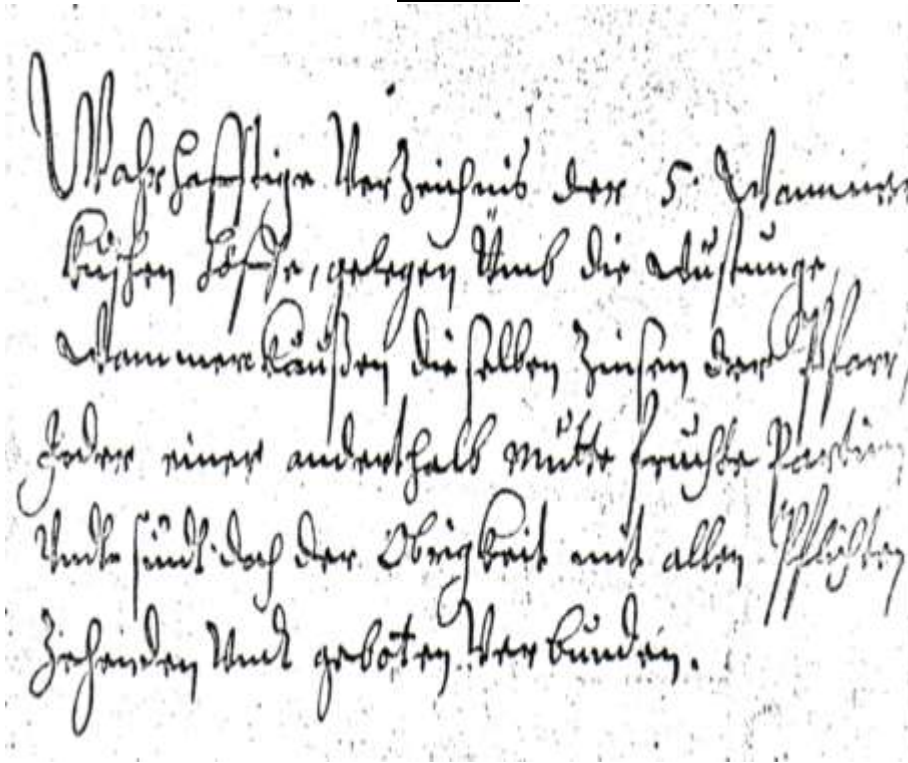 Wahrhafftige Verzeichnis der 5. Wammer
kußhen höffe, gelegen Umb die wüstunge
Wammerkaußen dieselben Zinsen der Pfarr,
Jeder einer anderthalb mütte fruchte Partim
Undt sindt doch der Obrigkeit mit allen Pflichten
Zehenden Undt geboten Verbunden.